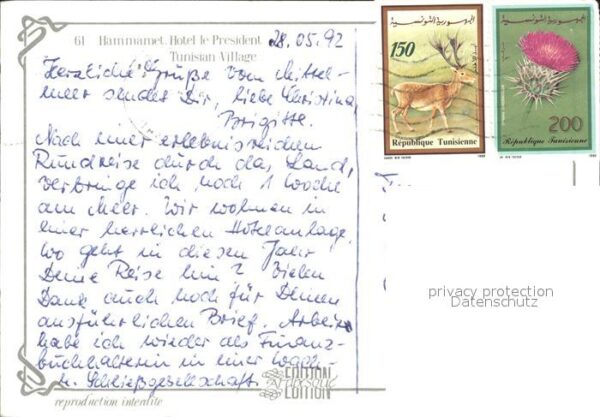 61 Hammamet, Hotel le President
Tunisian Village
28.05.92
Herzliche Grüße vom Mittel-
meer sendet Dir, liebe Christina,
Brigitte.
Nach einer erlebnisreichen
Rundreise durch das Land,
verbringe ich noch 1 Woche
am Meer. Wir wohnen in
einer herrlichen Hotelanlage.
Wo geht in diesen Jahr
Deine Reise hin? Vielen
Dank auch noch für Deinen
ausführlichen Brief. Arbeit
habe ich wieder als Finanz-
buchhalterin in einer Wach-
u. Schließgesellschaft.
EDITION
EDITION
reproduction interdite
الجمهورية التونسية
150
République Tunisienne
الجمهورية التونسية
200
République Tunisienne
privacy protection
Datenschutz